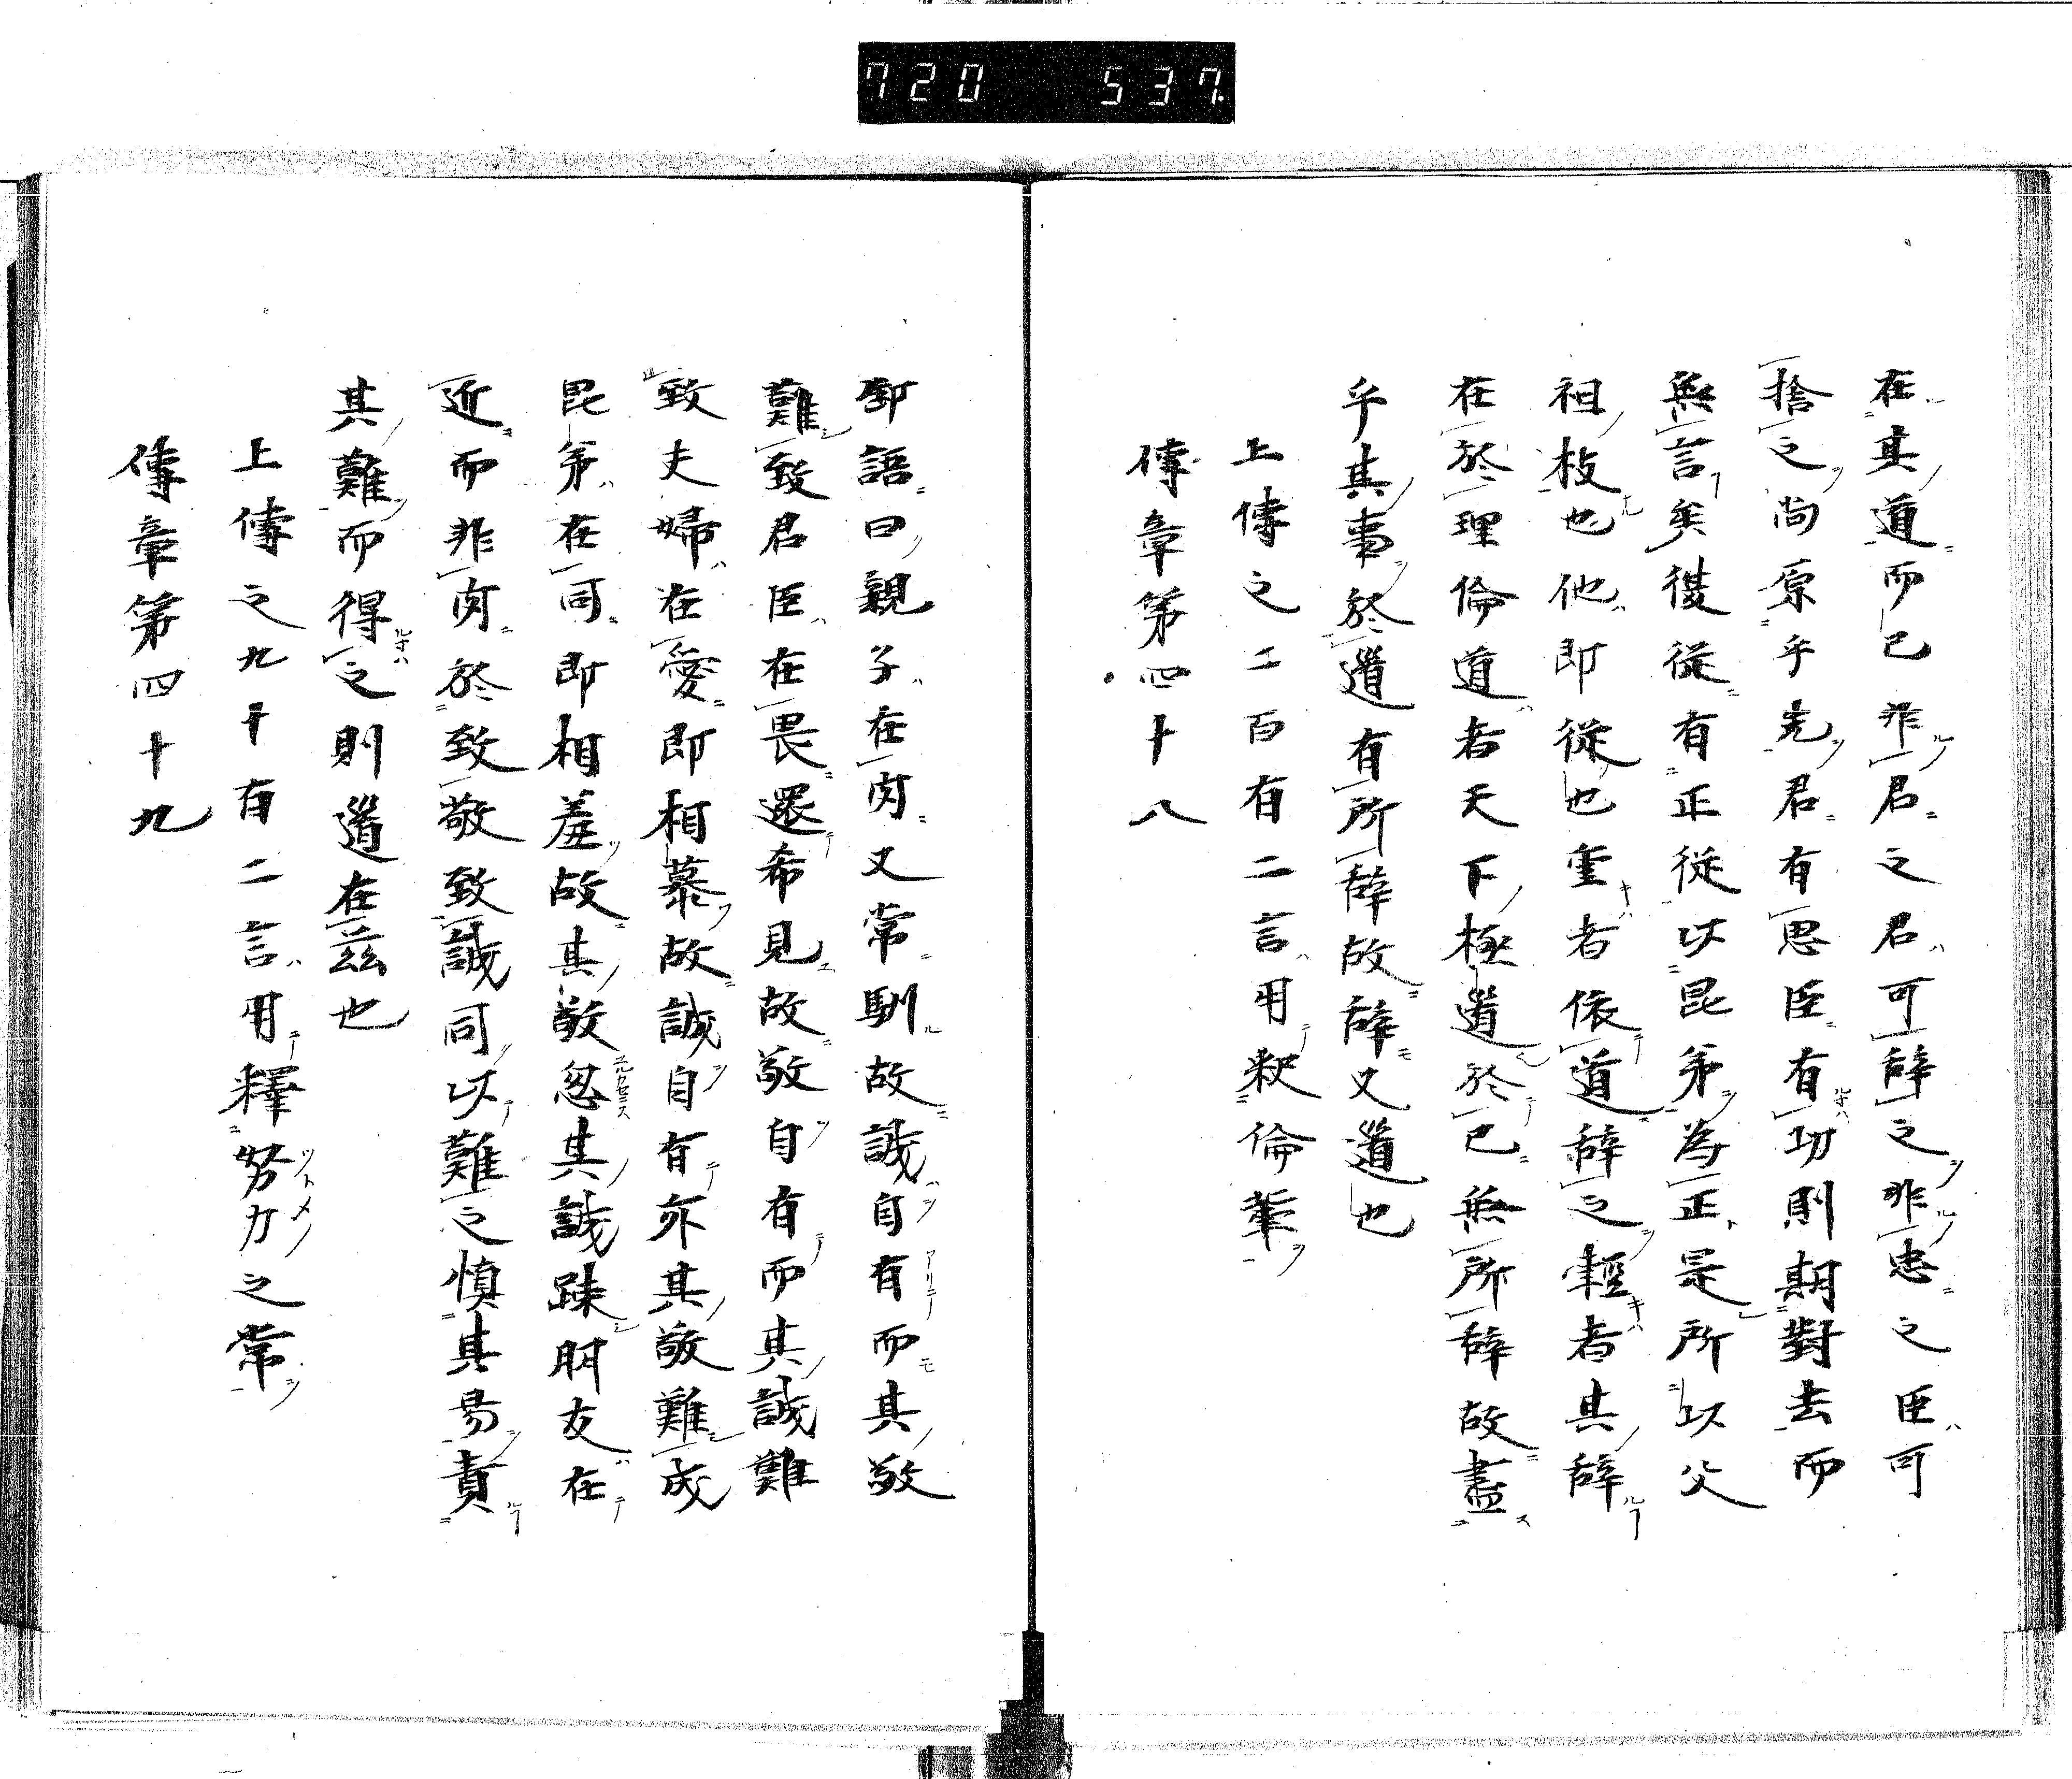 720 537
在其道而已非君之君可辭之非忠之臣可
捨之尚原乎先君有思臣有功則期對去而
無言矣從從有正從以昆弟為正是所以父
祖枝也他即從也重者依道辭之輕者其辭
在於理倫道者天下極道於已無所辭故盡
乎其事於道有所辭故辭又道也
上傳之二百有二言用釈倫輩
傳章第四十八
鄣語曰親子在肉又常馴故誠自有而其敬
難致君臣在畏還希見故敬自有而其誠難
致夫婦在愛即相慕故誠自有亦其敬難成
昆弟在同即相羞故其敬忽其誠踈朋友在
近而非肉於致敬致誠同以難之慎其易責
其難而得之則道在茲也
上傳之九十有二言用釋努力之常
傳章第四十九